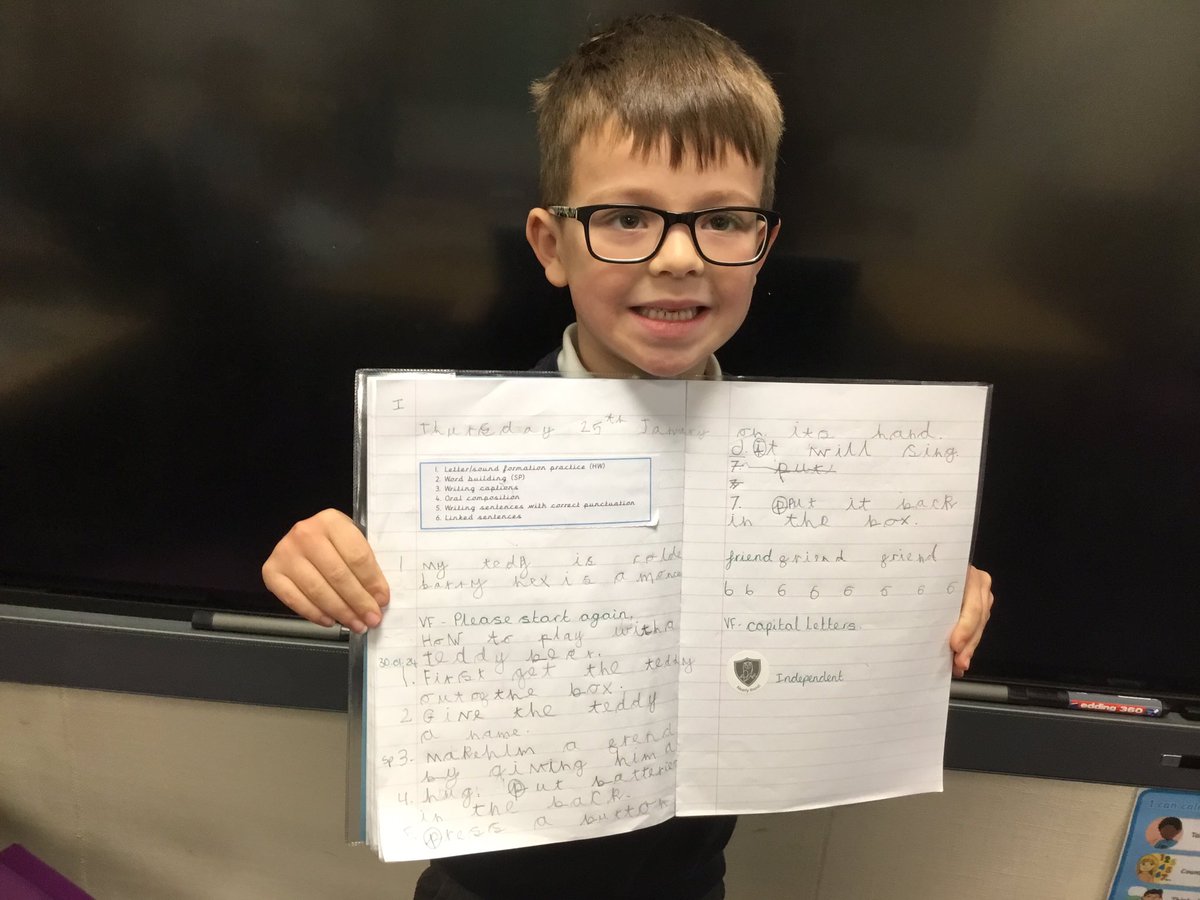 I
Thursday 25th January
1. Letter/sound formation practice (HW)
2. Word building (SP)
3. Writing captions
4. Oral composition
5. Writing sentences with correct punctuation
6. Linked sentences
1 My tedy is
barry hex is a
VF - Please start again.
How to play with a
30.01.24 teddy beer.
1. First get the teddy
out of the box.
2 Give the teddy
a name.
sp 3. make him a erend
by giving him a
4. hug. put batteries
in the back.
press a button
on its hand.
It will sing.
7. put
7. put it back
in the box.
friend friend friend
6 6 6 6 6 6 6 6
VF - capital letters.
Independent
edding 360
I can